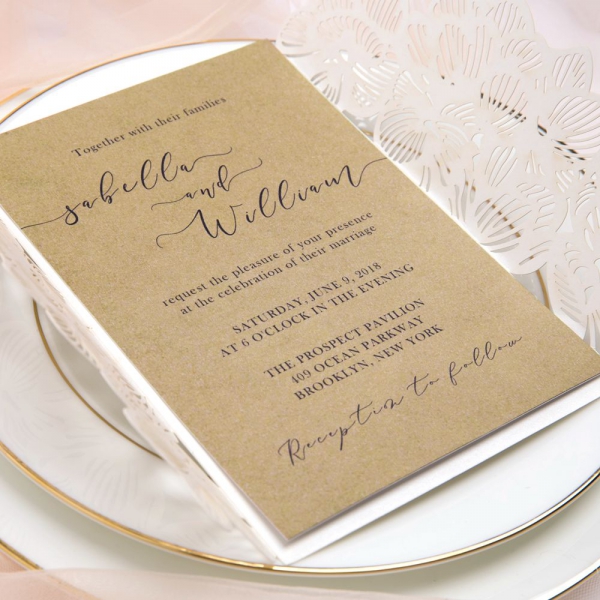 Together with their families
sabella
and
William
request the pleasure of your presence
at the celebration of their marriage
SATURDAY, JUNE 9, 2018
AT 6 O'CLOCK IN THE EVENING
THE PROSPECT PAVILION
409 OCEAN PARKWAY
BROOKLYN, NEW YORK
Reception to follow